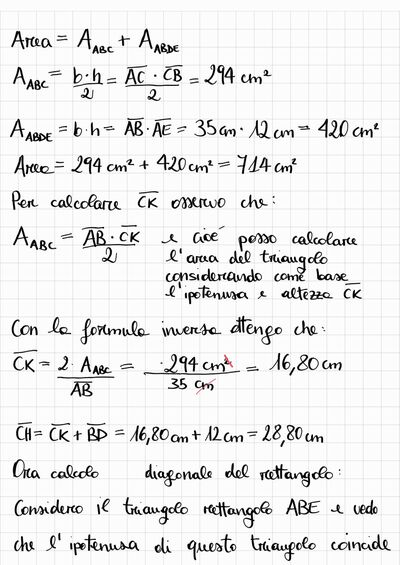 Area = A_ABC + A_ABDE
A_ABC = b·h/2 = AC·CB/2 = 294 cm²
A_ABDE = b·h = AB·AE = 35cm·12cm = 420cm²
Area = 294 cm² + 420cm² = 714cm²
Per calcolare CK osservo che:
A_ABC = AB·CK/2 e cioé posso calcolare
l'area del triangolo
considerando come base
l'ipotenusa e altezza CK
Con la formula inversa ottengo che:
CK = 2·A_ABC/AB = ·294 cm²/35 cm = 16,80 cm
CH = CK + BD = 16,80cm + 12cm = 28,80cm
Ora calcolo diagonale del rettangolo:
Considero il triangolo rettangolo ABE e vedo
che l'ipotenusa di questo triangolo coincide